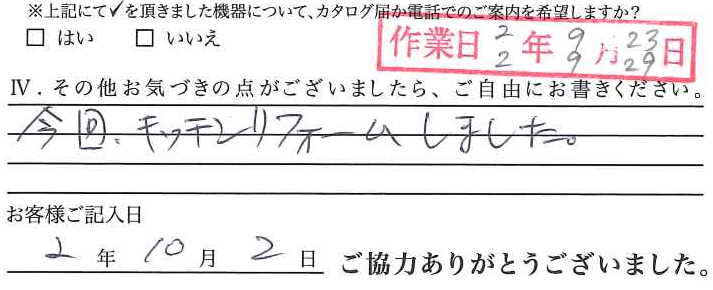 ※上記にて✓を頂きました機器について、カタログ届か電話でのご案内を希望しますか？
□ はい　□ いいえ
作業日 2年9月23日
2 9 29
Ⅳ．その他お気づきの点がございましたら、ご自由にお書きください。
今回、キッチンリフォームしました。
お客様ご記入日
2年10月2日 ご協力ありがとうございました。